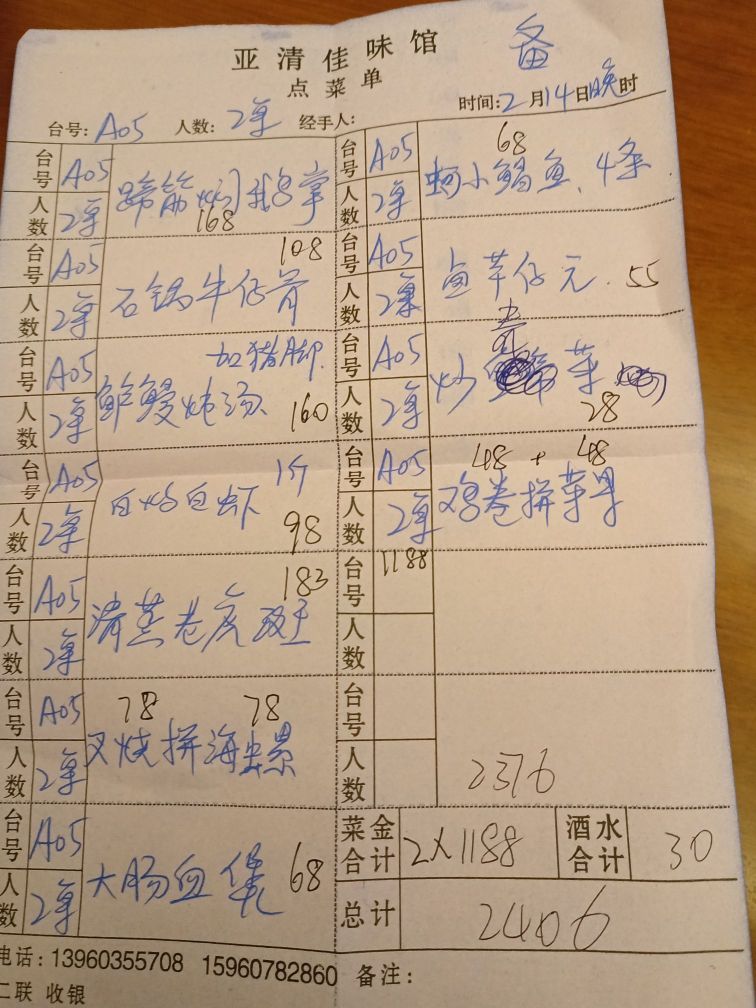 亚清佳味馆
备
点菜单
台号: A05 人数: 2桌 经手人:
时间: 2月14日晚时
台号 A05
人数 2桌
蹄筋焖
168
台号 A05
人数 2桌
108
石锅牛仔骨
台号 A05
人数 2桌
加猪脚
鲈鳗炖汤 160
台号 A05
人数 2桌
白灼白虾 1斤
98
台号 A05
人数 2桌
183
清蒸老虎斑
台号 A05
人数 2桌
78 78
叉烧拼海螺
台号 A05
人数 2桌
大肠血 68
台号 A05
人数 2桌
68
小鳎鱼、4条
台号 A05
人数 2桌
卤芋仔元. 55
台号 A05
人数 2桌
炒 菜
28
台号 A05
人数 2桌
48 + 48
鸡卷拼苹果
台号
人数
1188
台号
人数
2376
菜金合计 2×1188 酒水合计 30
总计 2406
电话: 13960355708 15960782860 备注:
二联 收银